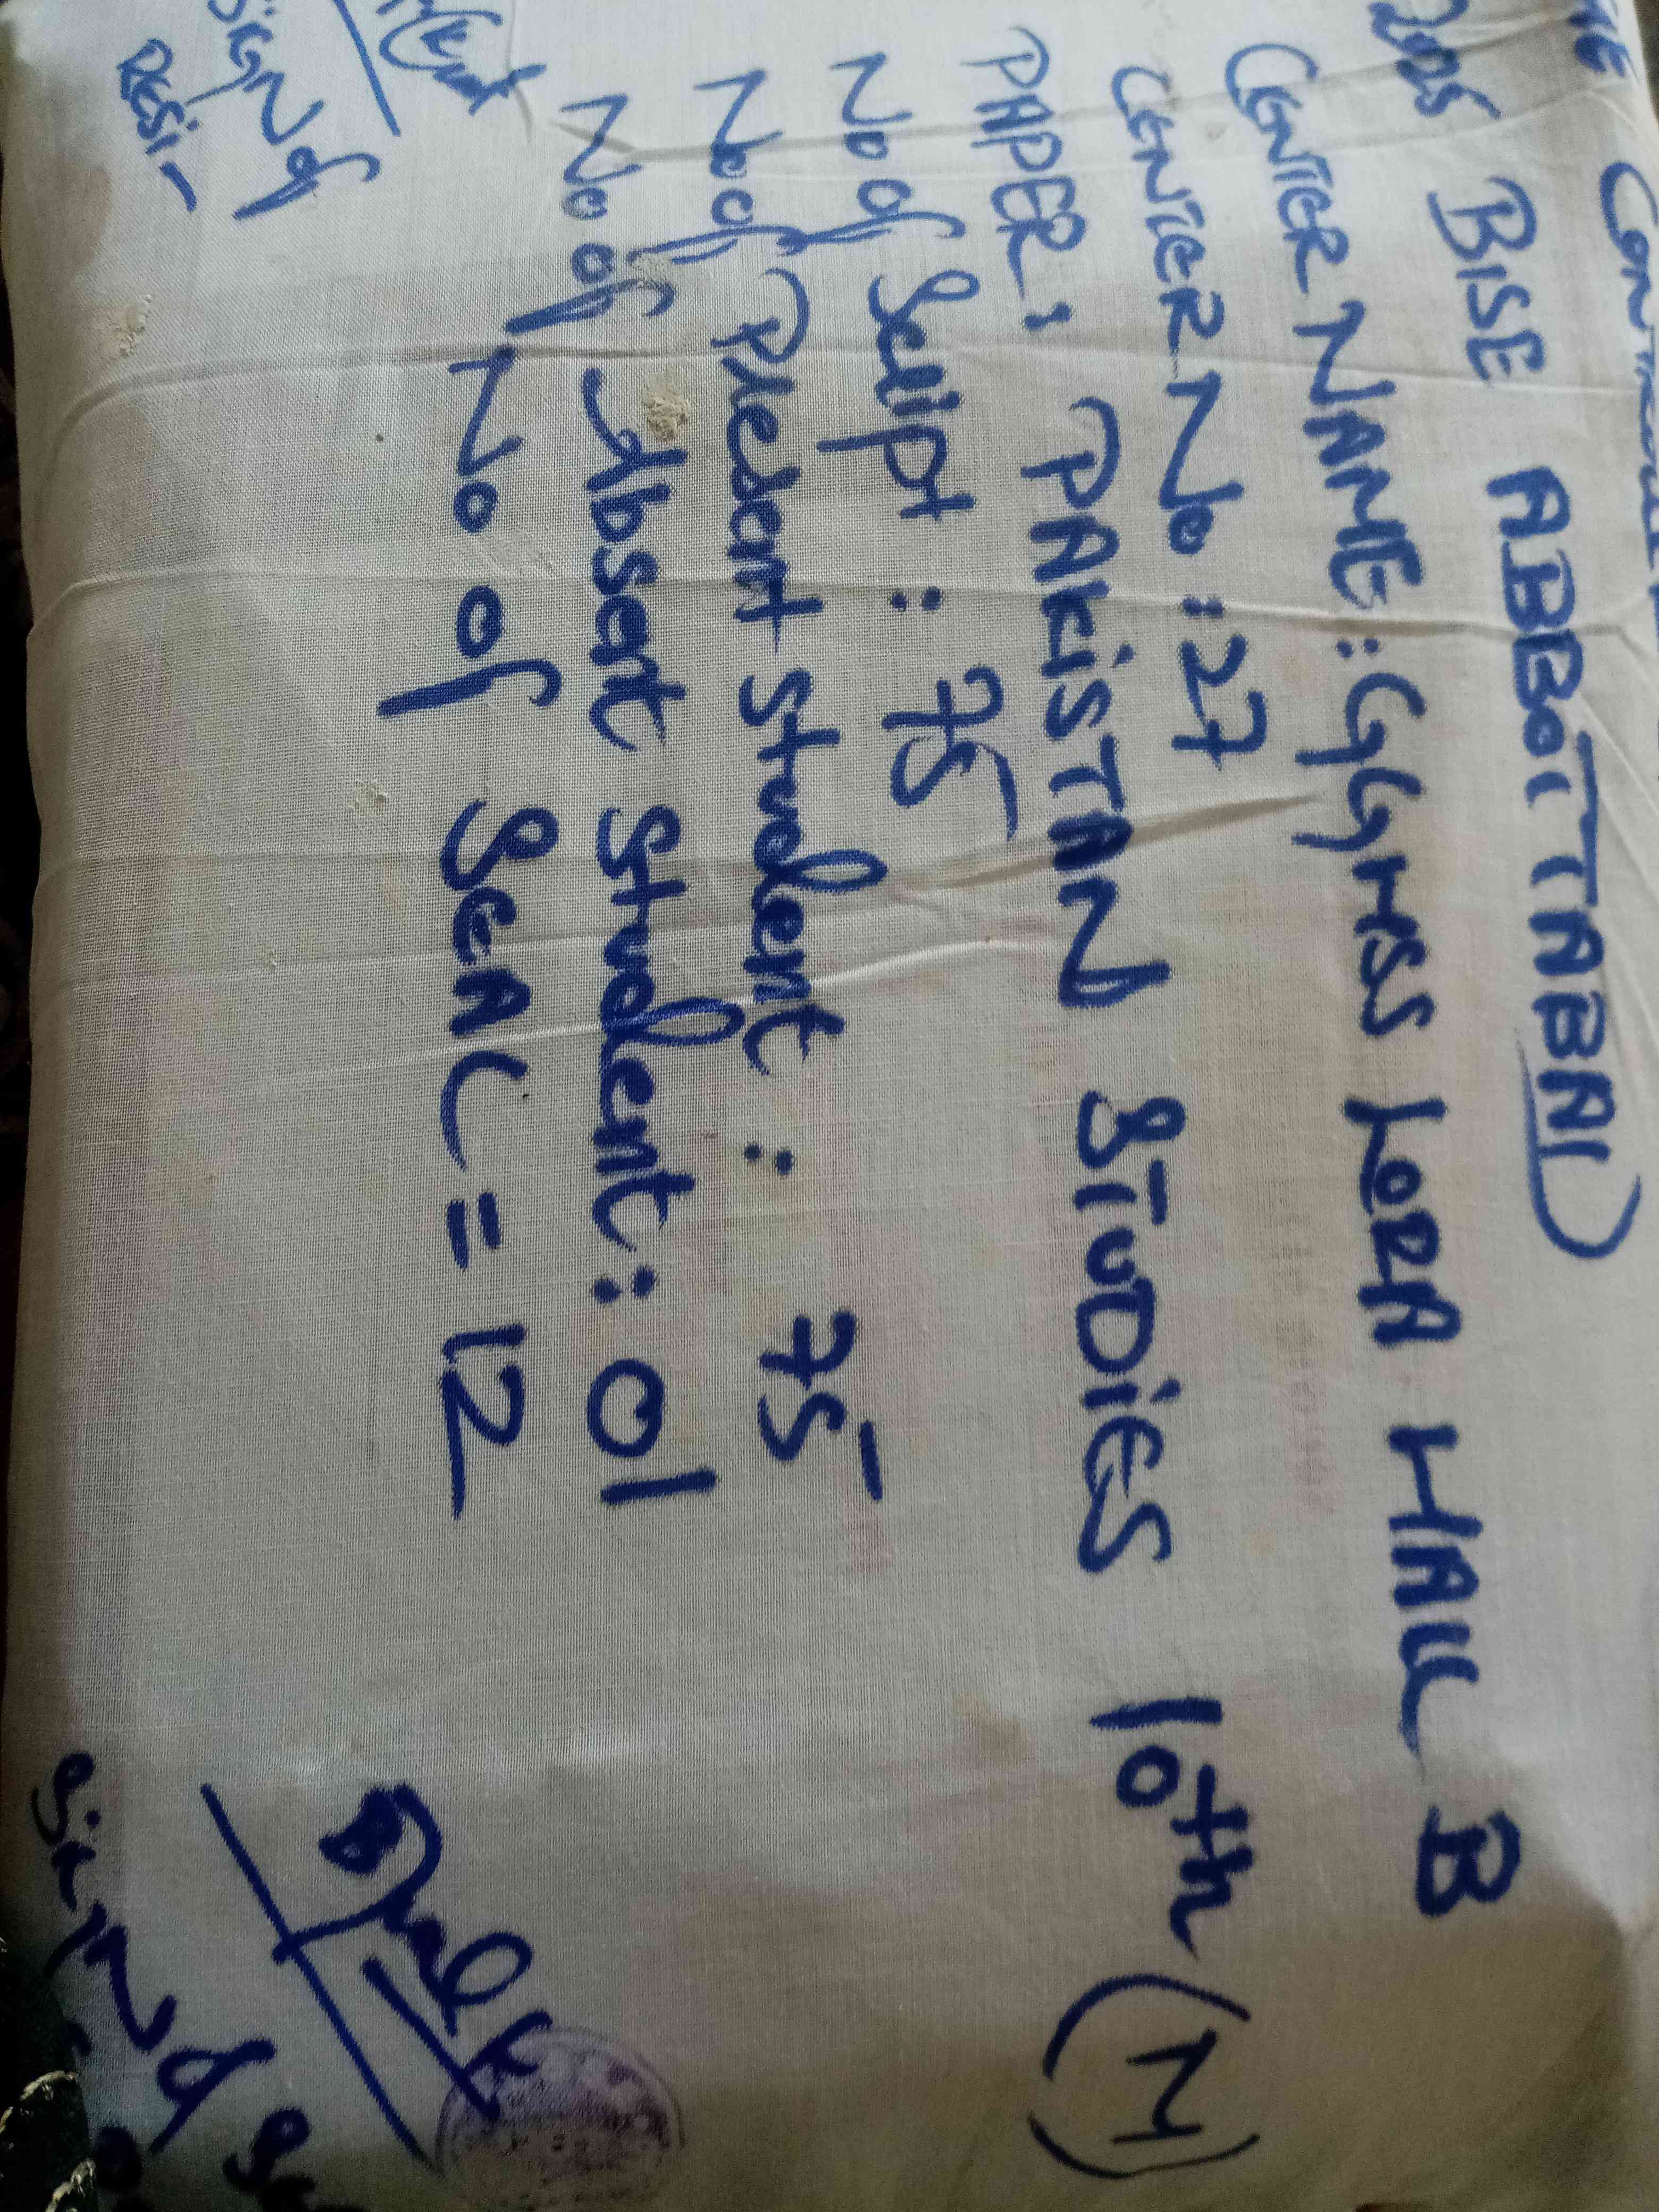 CONTROLLER
BISE ABBOTTABAD
CENTER NAME: GGHSS LORA HALL B
CENTER No: 27
PAPER: PAKISTAN STUDIES 10th (M)
No of Script: 75
No of Present Student: 75
No of Absent Student: 01
No of SEAL = 12
SIGN of
RESI-
SIGN of